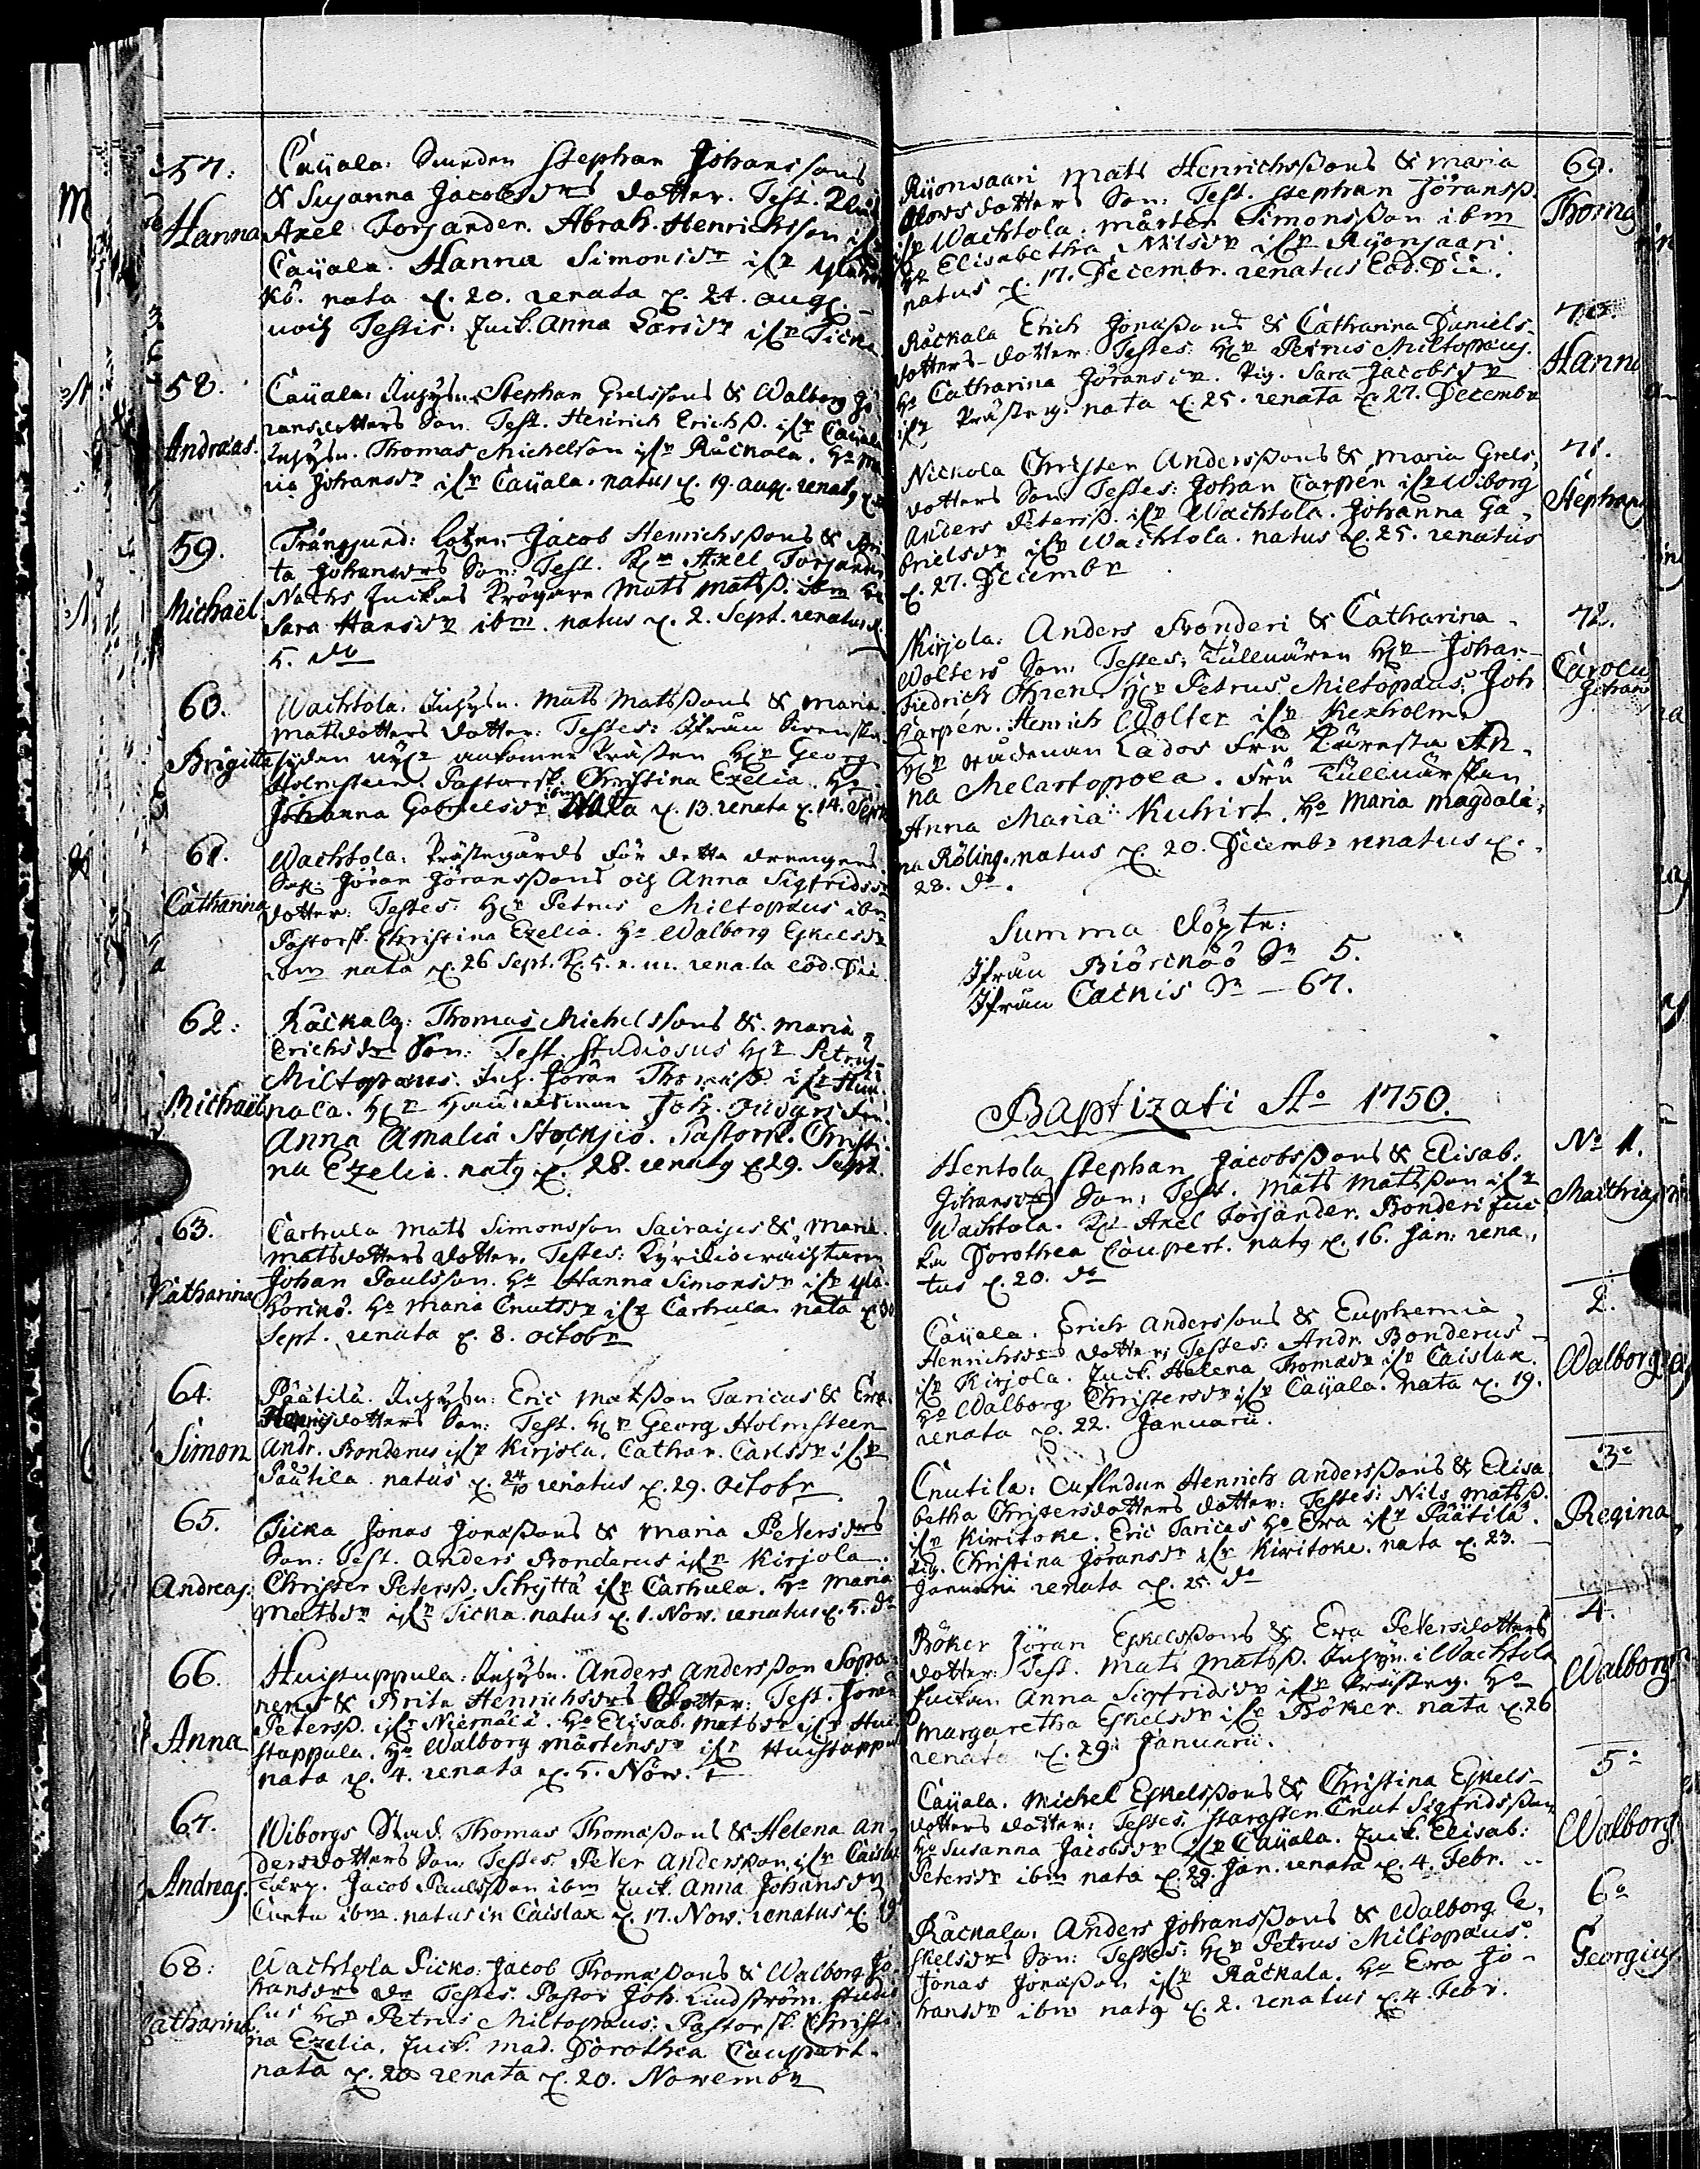 57.
Hanna
Caijala: Stephan Johanssons
& Susanna Jacobsdrs dotter. Test.
Axel Forsander. Abrah. Henrichsson
Caijala. Hanna Simonsdr
nata d. 20. renata d. 24. aug.
Testis: Anna Larsdr Ticka
58.
Andreas.
Caijala: Inhysn. Stephan Grelssons & Walborg Jö-
ransdotters Son. Test. Heinrich Erichss. ifr Caijala
Inhysn. Thomas Michelson ifr Råckala. Ho Ma
ria Johansdr ifr Caijala. natus d. 19. aug. renatg
59.
Michaël
Trångsund: Jacob Henrichssons &
ta Johansdrs Son: Test. Hr Axel Forsander
Mats Matss. ibm
Sara Hansdr ibm. natus d. 2. Sept. renatus d.
5. do
60.
Brigitta
Wachtola. Inhysn. Mats Matssons & Maria
Matsdotters dotter: Testes: Ifrån
Prästen Hr Georg
Holmsteen. Pastorsk. Christina Ezelia. Ho
Johanna Gabrielsdr ibm Nata d. 13. renata d. 14. Sept
61.
Catharina
Wachtola: Prästegårds för detta drengens
Jöran Jöranssons och Anna Sigfridsdr
dotter: Testes: Hr Petrus Miltopaus ibm
Pastorsk. Christina Ezelia. Ho Walborg Eskelsdr
ibm nata d. 26 Sept. renata eod. Die
62:
Michaël
Råckala: Thomas Michelssons & Maria
Erichsdrs Son: Test. Studiosus Hr Petrus
Miltopaus. Jöran Thomass. ifr
nala. Hr Joh.
Anna Amalia Stocksio. Pastorsk. Christi
na Ezelia. natg d. 28. renatg d 29. Sept.
63.
Catharina
Cartula Mats Simonsson Sairaises & Maria
Matsdotters dotter. Testes:
Johan Paulsson. Ho Hanna Simonsdr ifr Yla-
Ho Maria Cnutsdr ifr Cartula. nata d 30
Sept. renata d. 8. octobr
64.
Simon
Päätilä. Inhysn: Eric Matsson Taricas & Eva
dotters Son: Test. Hr Georg Holmsteen
Andr. Bonderus ifr Kirjola. Cathar. Carlsdr ifr
Päätila. natus d. 24/10 renatus d. 29. Octobr
65.
Andreas.
Ticka Jonas Jonassons & Maria Petersdrs
Son: Test. Anders Bonderus ifr Kirjola.
Christer Peterss. Schyttä ifr Cartula. Ho Maria
Matsdr ifr Ticka. natus d. 1. Nov. renatus d. 5. do
66.
Anna
Huistuppula: Inhysn. Anders Andersson Sopa-
nens & Brita Henrichsdrs Dotter: Test. Jöran
Peterss. ifr Niemälä. Ho Elisab. Matsdr ifr Hui
stappula. Ho Walborg Mårtensdr ifr Huistappul
nata d. 4. renata d. 5. Nov.
67.
Andreas.
Wiborgs Stad. Thomas Thomassons & Helena An-
dersdotters Son: Testes: Peter Andersson, ifr Caislax
Jacob Paulsson ibm Anna Johansdr
ibm. natus in Caislax d. 17. Nov. renatus d. 19
68:
Catharina
Wachtola Jacob Thomassons & Walborg Jo
hansdrs dr Testes: Pastor Joh. Lindström. Studio
sus Hr Petrus Miltopaus: Pastorsk. Christi
na Ezelia. Mad. Dorothea Caupert.
nata d. 20 renata d. 20. Novembr
69.
Thomas
Rijonsaari Mats Henrichssons & Maria
dotters Son: Test. Stephan Jöranss.
ifr Wachtola: Mårten Simonsson ibm
Ho Elisabetha Nilsdr ifr Rijonsaari.
natus d. 17. Decembr. renatus Eod. Die.
70.
Hanna
Råckala Erich Jonassons & Catharina Daniels-
dotters dotter: Testes: Hr Petrus Miltopaus.
Ho Catharina Jöransdr. Pig. Sara Jacobsdr
ifr Prästeg. nata d. 25. renata d. 27. Decembr
71.
Stephan
Nickola Christer Anderssons & Maria Grels-
dotters Son: Testes: Johan Carpén ifr Wiborg
Anders Peterss. ifr Wachtola. Johanna Ga-
brielsdr ifr Wachtola. natus d. 25. renatus
d. 27. Decembr
72.
Carolus
Johan
Kirjola: Anders Bonderi & Catharina
Wolters Son: Testes: Tullnären Hr Johan
Fiedrich Öhren. Hr Petrus Miltopaus. Joh
Carpén. Henrich Wolter ifr Kexholm.
Hr Rådman Lados Fru An-
na Melartopoea. Fru Tullnärskan
Anna Maria Kuhirt. Ho Maria Magdale-
na Röling. natus d. 20. Decembr renatus d.
28. do.
Summa döpte:
Ifrån Biörinöö Sn 5.
Ifrån Cacknis Sn — 67.
Baptizati Ao 1750.
No 1.
Matthias
Hentola Stephan Jacobssons & Elisab:
Johansdrs Son: Test. Mats Matsson ifr
Wachtola. Hr Axel Forsander. Bonderi
Dorothea Caupert. natg d. 16. Jan: rena-
tus d. 20. do
2.
Walborg
Caijala. Erich Anderssons & Euphemia
Henrichsdrs dotter: Testes: Andr. Bonderus
ifr Kirjola. Helena Thomasdr ifr Caislax.
Ho Walborg Christersdr ifr Caijala. nata d. 19.
renata d. 22. Januarii.
3.
Regina
Cnutila: Henrich Anderssons & Elisa
betha Christersdotters dotter: Testes: Nils Matss.
ifr Kiritoke. Eric Taricas Ho Eva ifr Päätilä.
Pig. Christina Jöransdr ifr Kiritoke. nata d. 23.
Januarii renata d. 25. do
4.
Walborg
Böker Jöran Eskelssons & Eva Petersdotters
dotter: Test. Mats Matss. Inhysn. i Wachtola
Anna Sigfridsdr ifr Prästeg. Ho
Margaretha Eskelsdr ifr Böker. nata d. 26
renata d. 29. Januarii.
5.
Walborg
Caijala. Michel Eskelssons & Christina Eskels-
dotters dotter: Testes. Starosten Cnut Sigfridsson
Ho Susanna Jacobsdr ifr Caijala. Elisab:
Petersdr ibm nata d. 29. Jan. renata d. 4. Febr.
6.
Georgius
Råckala. Anders Johanssons & Walborg E-
skelsdrs Son: Testes: Hr Petrus Miltopaus.
Jonas Jonasson ifr Råckala. Ho Eva Jo-
hansdr ibm natg d. 2. renatus d. 4. Febr.